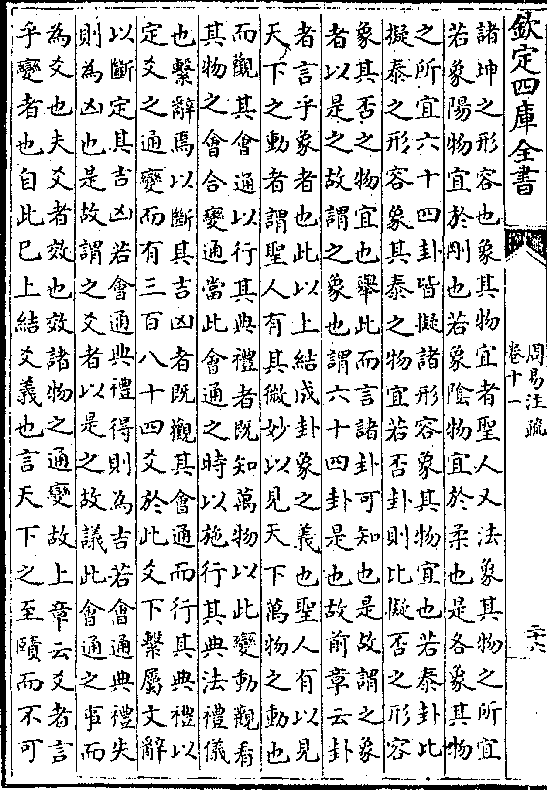 欽定四庫全書
周易注疏
卷十一
二十六
諸坤之形容也象其物宜者聖人又法象其物之所宜
若象陽物宜於剛也若象陰物宜於柔也是各象其物
之所宜六十四卦皆擬諸形容象其物宜也若泰卦比
擬泰之形容象其泰之物宜若否卦則比擬否之形容
象其否之物宜也舉此而言諸卦可知也是故謂之象
者以是之故謂之象也謂六十四卦是也故前章云卦
者言乎象者也此以上結成卦象之義也聖人有以見
天下之動者謂聖人有其微妙以見天下萬物之動也
而觀其會通以行其典禮者既知萬物以此變動觀看
其物之會合變通當此會通之時以施行其典法禮儀
也繫辭焉以斷其吉凶者既觀其會通而行其典禮以
定爻之通變而有三百八十四爻於此爻下繫屬文辭
以斷定其吉凶若會通典禮得則為吉若會通典禮失
則為凶也是故謂之爻者以是之故議此會通之事而
為爻也夫爻者效也效諸物之通變故上章云爻者言
乎變者也自此已上結爻義也言天下之至賾而不可